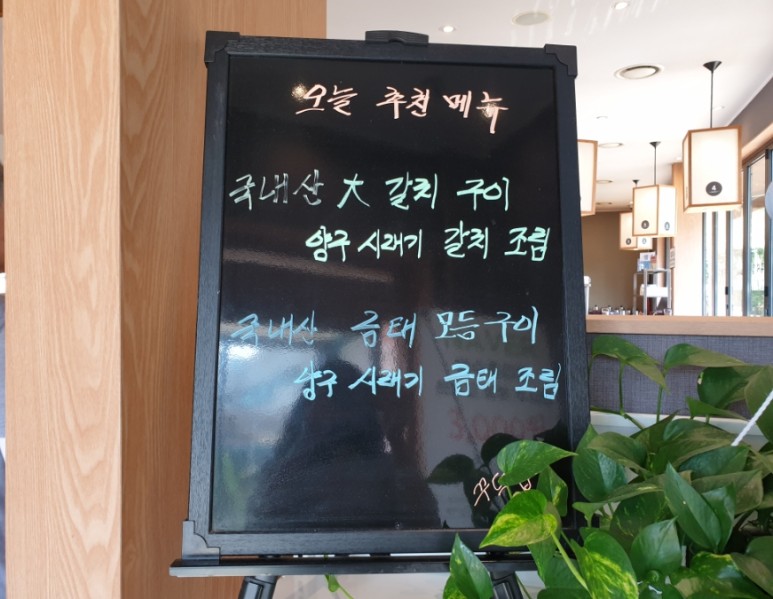 오늘 추천 메뉴
국내산 大 갈치 구이
양구 시래기 갈치 조림
국내산 금태 모듬구이
양구 시래기 금태 조림